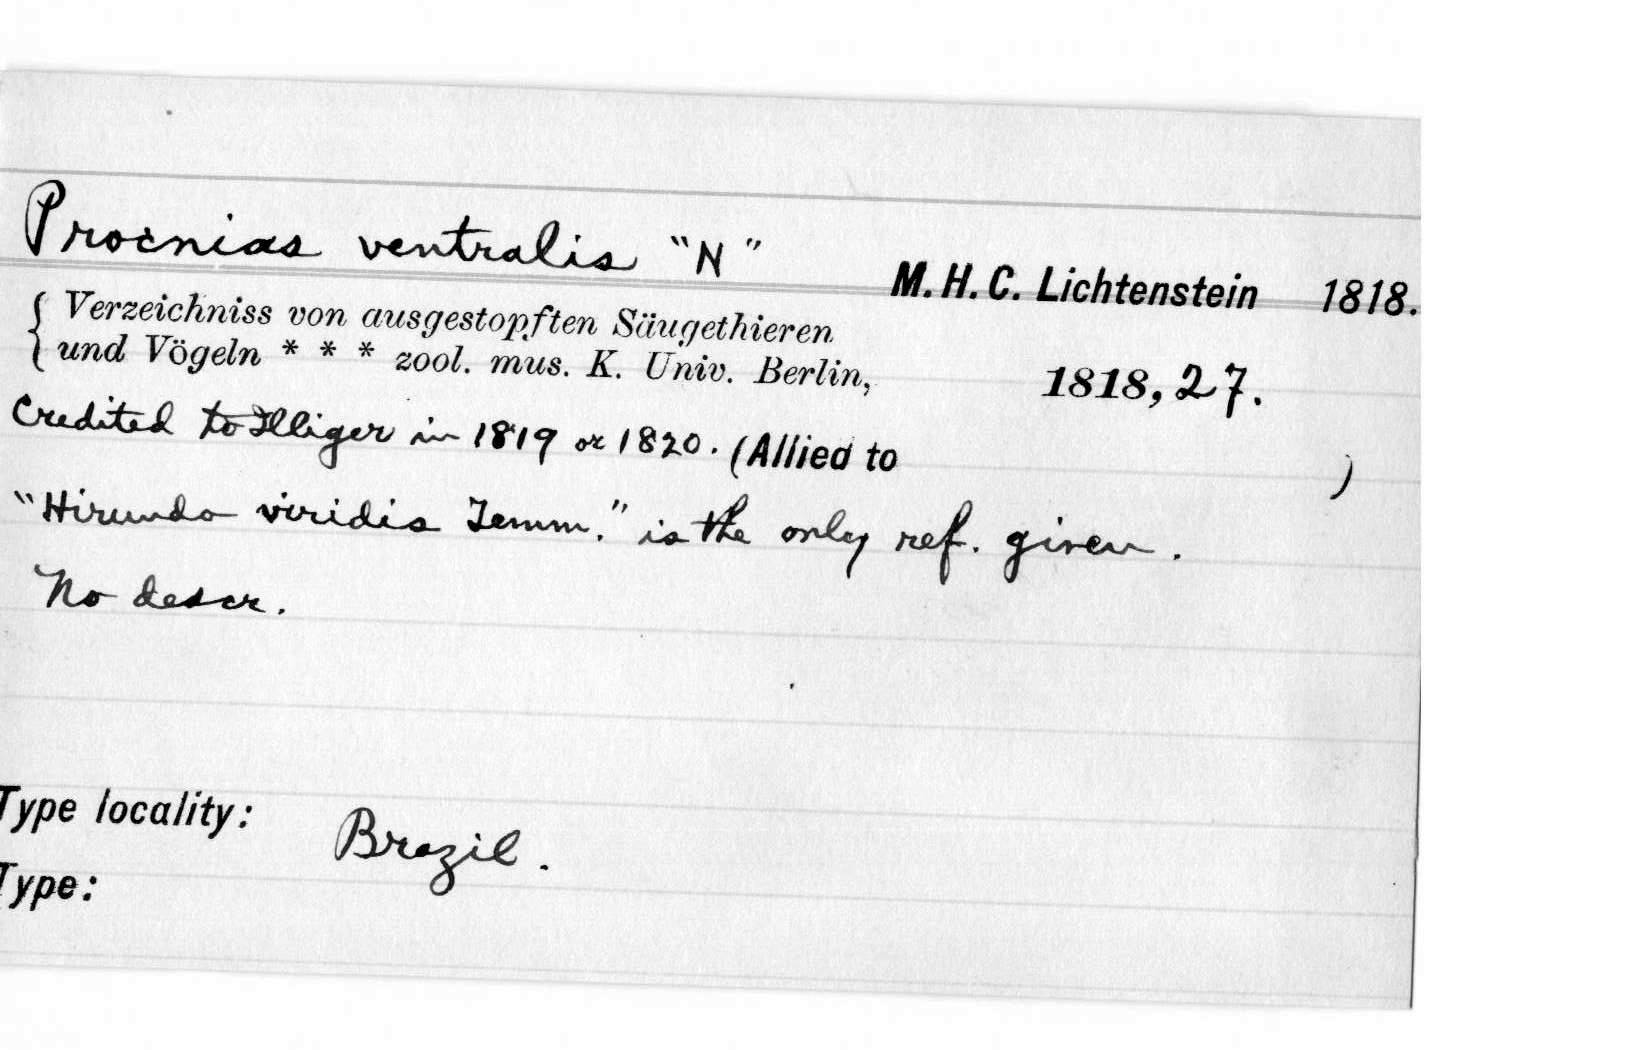 Procnias ventralis "N" M. H. C. Lichtenstein 1818.
{ Verzeichniss von ausgestopften Säugethieren
und Vögeln * * * zool. mus. K. Univ. Berlin, 1818, 27.
Credited to Illiger in 1819 or 1820. (Allied to )
"Hirundo viridis Temm." is the only ref. given.
No descr.
Type locality: Brazil.
Type: